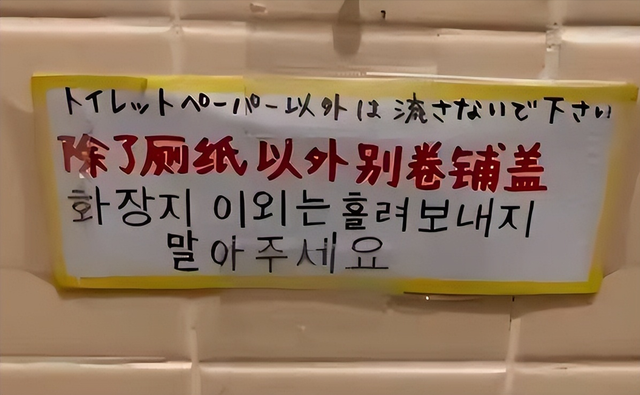 トイレットペーパー以外は流さないで下さい
除了厕纸以外别卷铺盖
화장지 이외는 흘려보내지
말아주세요